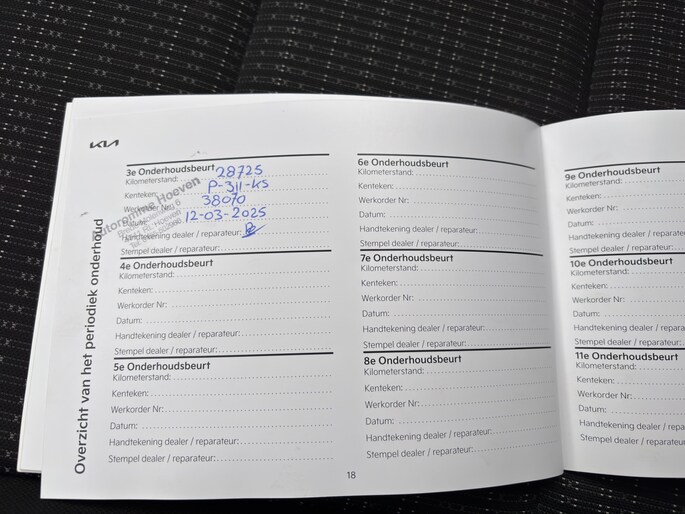 KIA
Overzicht van het periodiek onderhoud
3e Onderhoudsbeurt
Kilometerstand: 28725
Kenteken: P-311-KS
Werkorder Nr.: 38070
Datum: 12-03-2025
Handtekening dealer / reparateur:
Stempel dealer / reparateur:
Hoeven
4e Onderhoudsbeurt
Kilometerstand:
Kenteken:
Werkorder Nr:
Datum:
Handtekening dealer / reparateur:
Stempel dealer / reparateur:
5e Onderhoudsbeurt
Kilometerstand:
Kenteken:
Werkorder Nr:
Datum:
Handtekening dealer / reparateur:
Stempel dealer / reparateur:
6e Onderhoudsbeurt
Kilometerstand:
Kenteken:
Werkorder Nr:
Datum:
Handtekening dealer / reparateur:
Stempel dealer / reparateur:
7e Onderhoudsbeurt
Kilometerstand:
Kenteken:
Werkorder Nr:
Datum:
Handtekening dealer / reparateur:
Stempel dealer / reparateur:
8e Onderhoudsbeurt
Kilometerstand:
Kenteken:
Werkorder Nr:
Datum:
Handtekening dealer / reparateur:
Stempel dealer / reparateur:
18
9e Onderhoudsbeurt
Kilometerstand:
Kenteken:
Werkorder Nr:
Datum:
Handtekening dealer / repara
Stempel dealer / reparateur:
10e Onderhoudsbeurt
Kilometerstand:
Kenteken:
Werkorder Nr:
Datum:
Handtekening dealer / repara
Stempel dealer / reparateur:
11e Onderhoudsbeurt
Kilometerstand:
Kenteken:
Werkorder Nr:
Datum:
Handtekening dealer / repara
Stempel dealer / reparateur